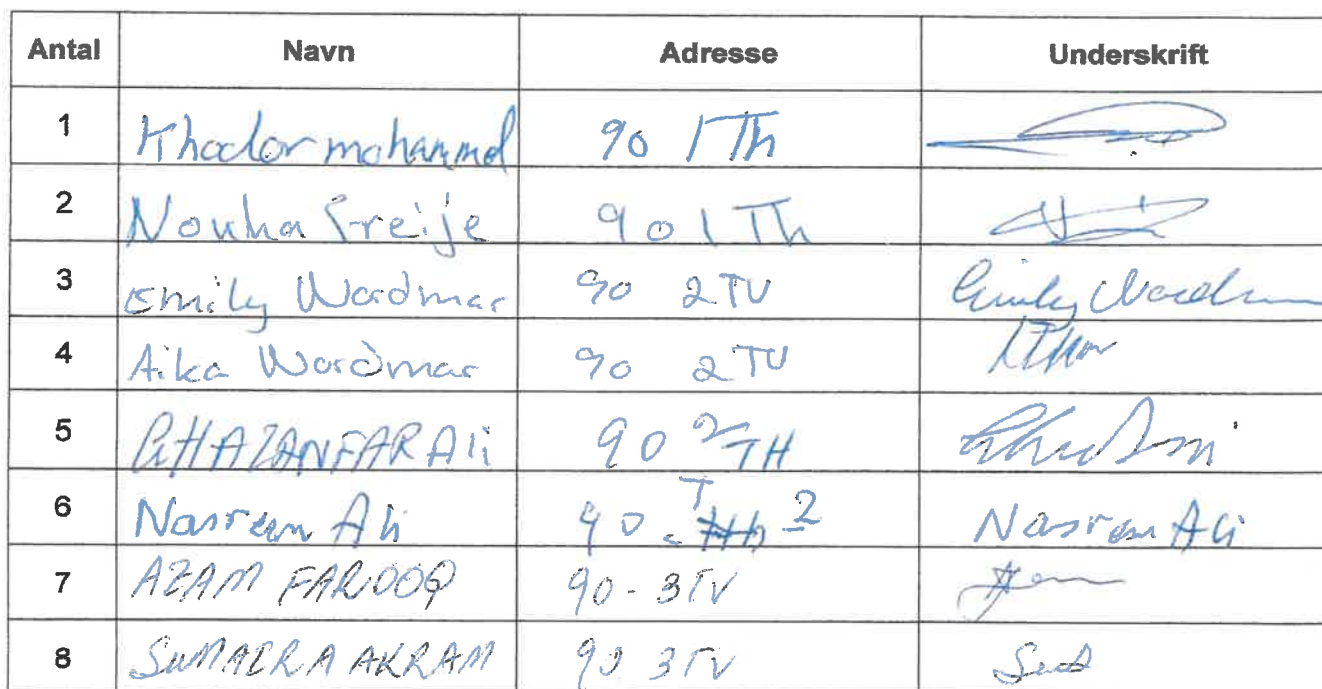 Antal Navn Adresse Underskrift
1 Khodor mohammed 90 1 Th
2 Nouha Freije 90 1 Th
3 Emily Wardmar 90 2 TV Emily
4 Aika Wardmar 90 2 TV
5 GHAZANFAR Ali 90 2/TH
6 Nasreen Ali 90. Th 2 Nasreen Ali
7 AZAM FAROOQ 90 - 3TV
8 SUMAIRA AKRAM 90 3TV